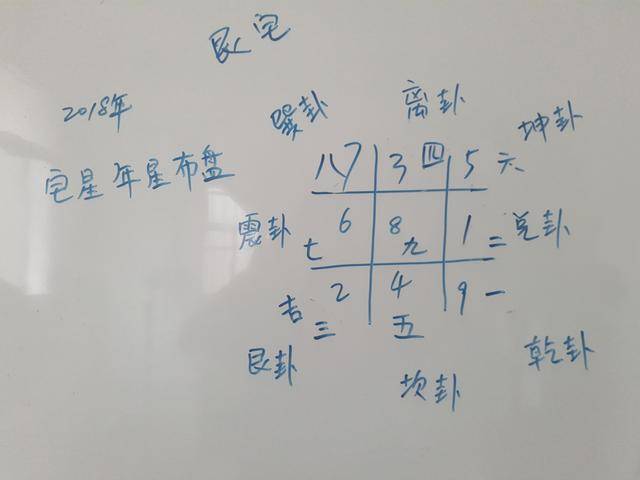 艮宅
2018年
巽卦 离卦 坤卦
宅星年星布盘
八7 3四 5六
震卦 七6 8九 1二 兑卦
吉三2 4五 9一
艮卦 坎卦 乾卦